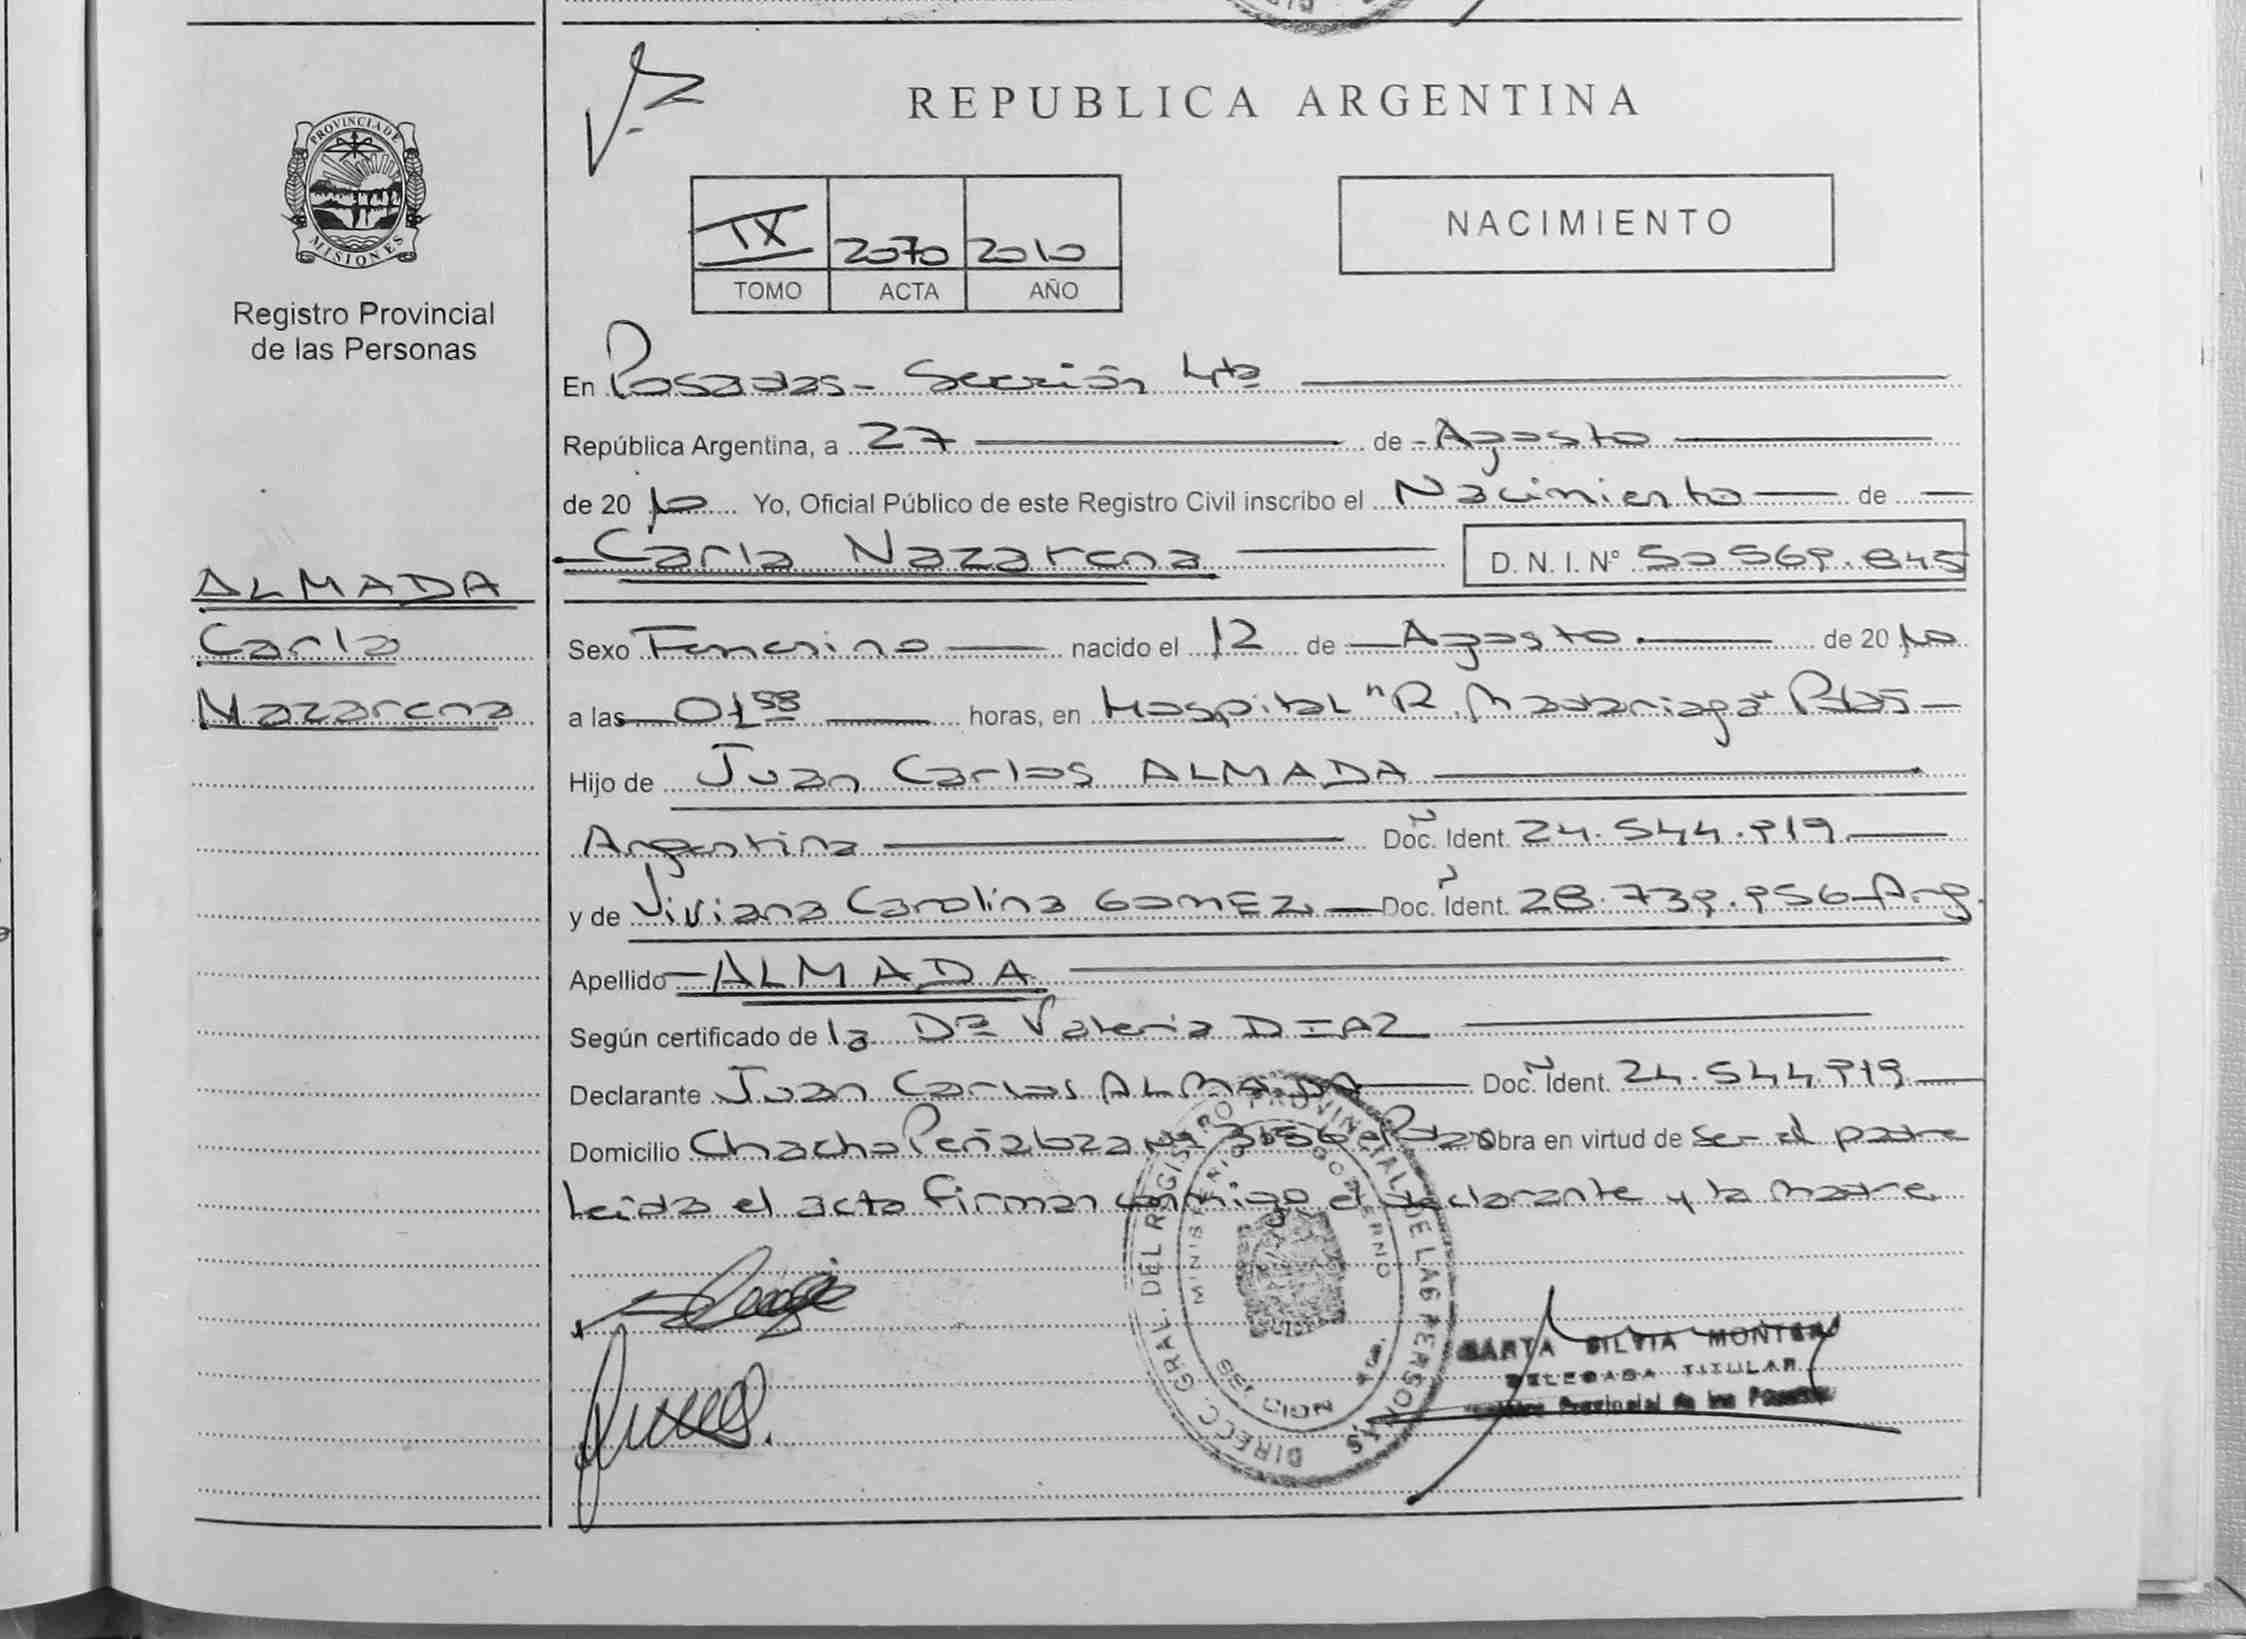 REPUBLICA ARGENTINA
PROVINCIA DE
MISIONES
Registro Provincial
de las Personas
IX 2070 2010
TOMO ACTA AÑO
NACIMIENTO
En Posadas - Sección 4ta
República Argentina, a 27 de Agosto
de 2010 Yo, Oficial Público de este Registro Civil inscribo el Nacimiento de
Carla Nazarena D. N. I. Nº 50.569.845
ALMADA
Carla
Nazarena
Sexo Femenino nacido el 12 de Agosto de 2010
a las 01 58 horas, en Hospital "R. Madariaga" Pdas
Hijo de Juan Carlos ALMADA
Argentina Doc. Ident. 24.544.919
y de Viviana Carolina GOMEZ Doc. Ident. 28.739.956 Arg.
Apellido ALMADA
Según certificado de la Dra Valeria DIAZ
Declarante Juan Carlos ALMADA Doc. Ident. 24.544.919
Domicilio Chacho Peñaloza Nº Obra en virtud de ser el padre
Leída el acta firman conmigo el declarante y la madre
DIRECC. GRAL. DEL REGISTRO PROVINCIAL DE LAS PERSONAS
MINISTERIO DE GOBIERNO
SILVIA
DELEGADA TITULAR
Provincial de las